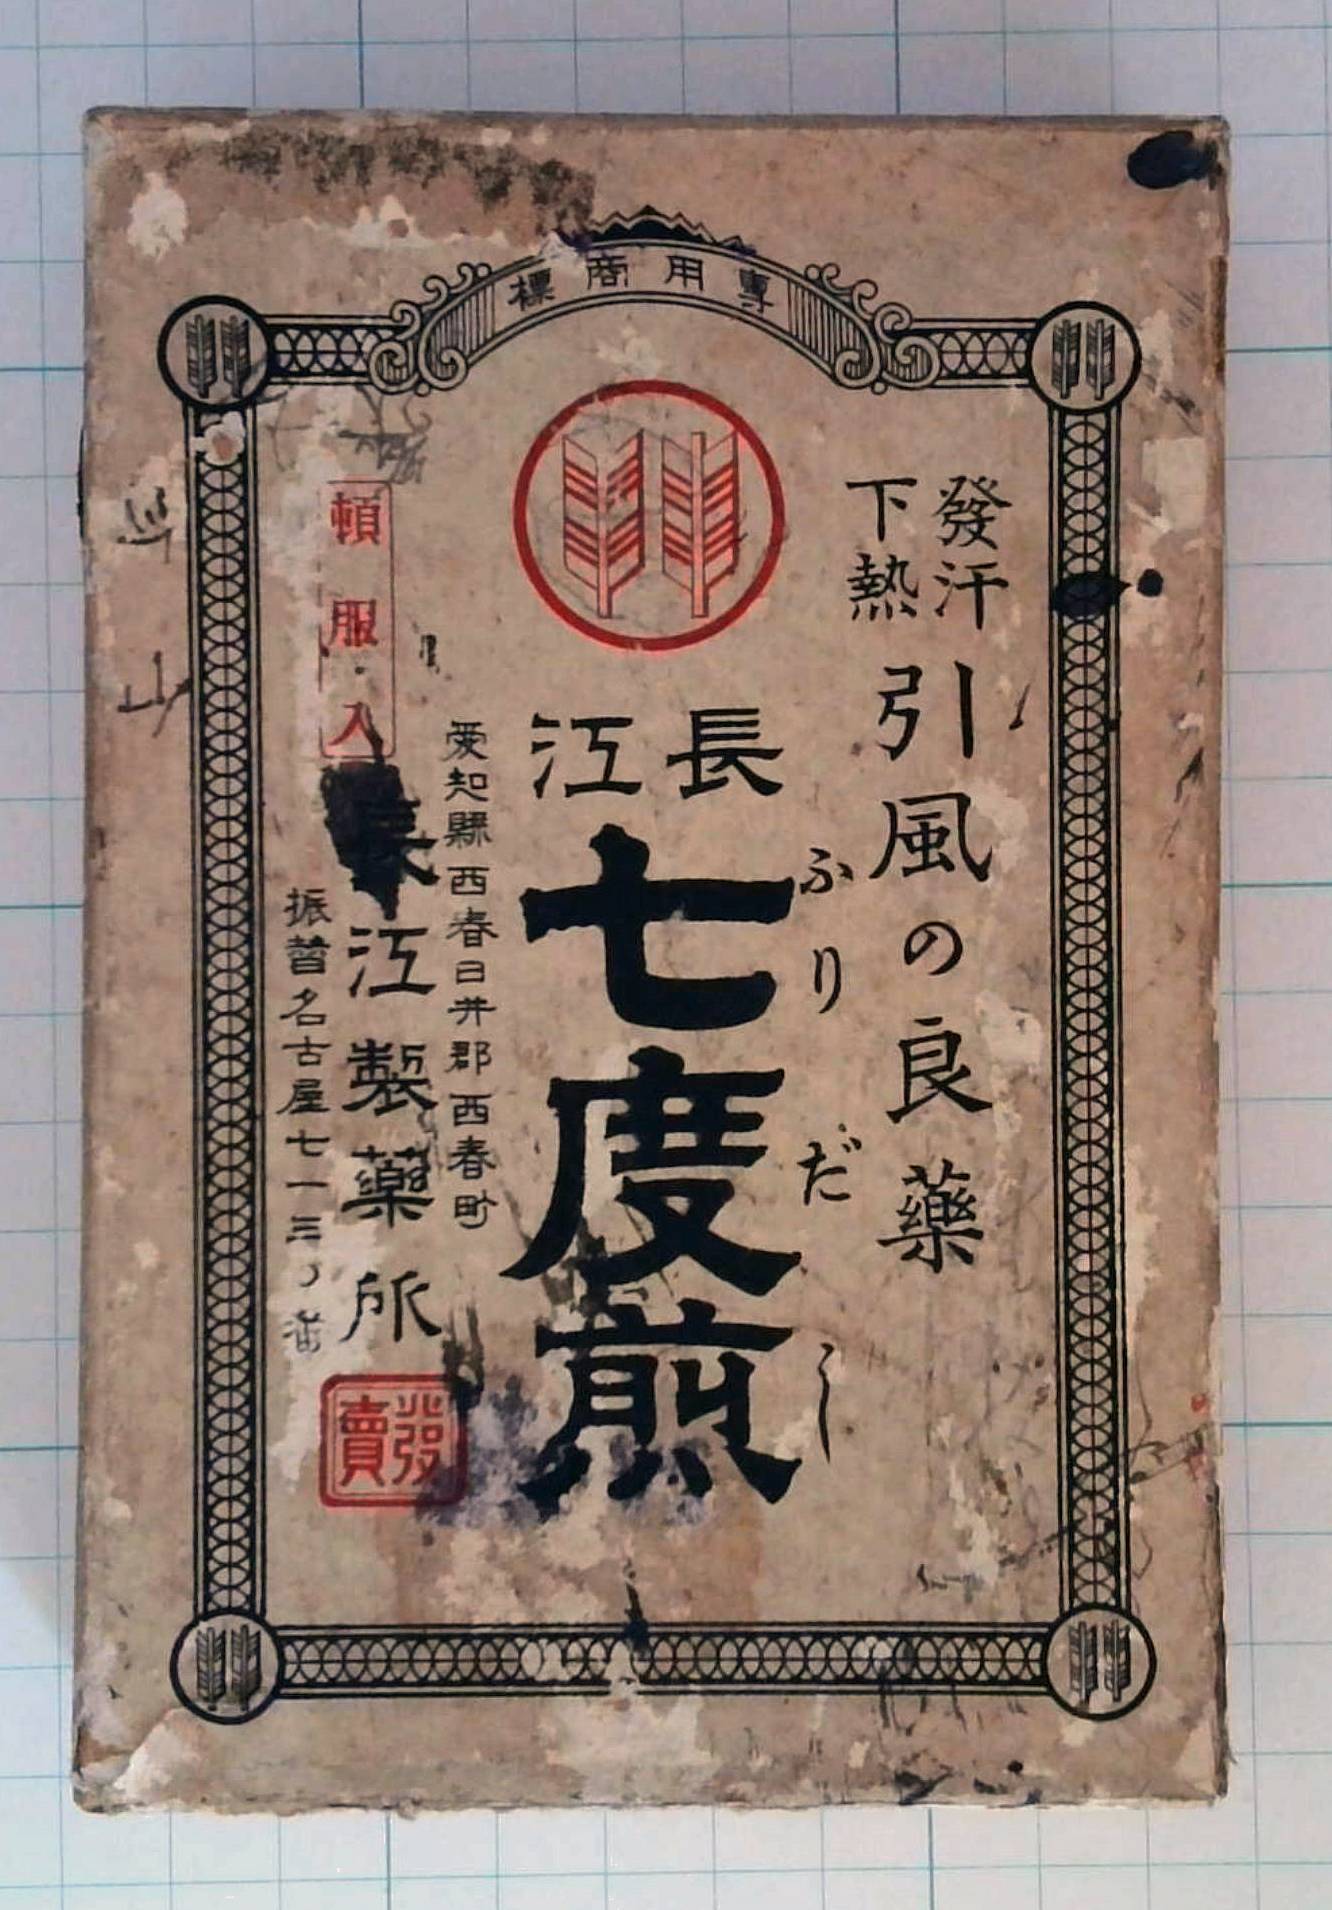 專用商標
發汗
下熱
引風の良藥
長江
七度煎
ふりだし
愛知縣西春日井郡西春町
長江製藥所
振替名古屋七一三〇番
頓服入
發賣